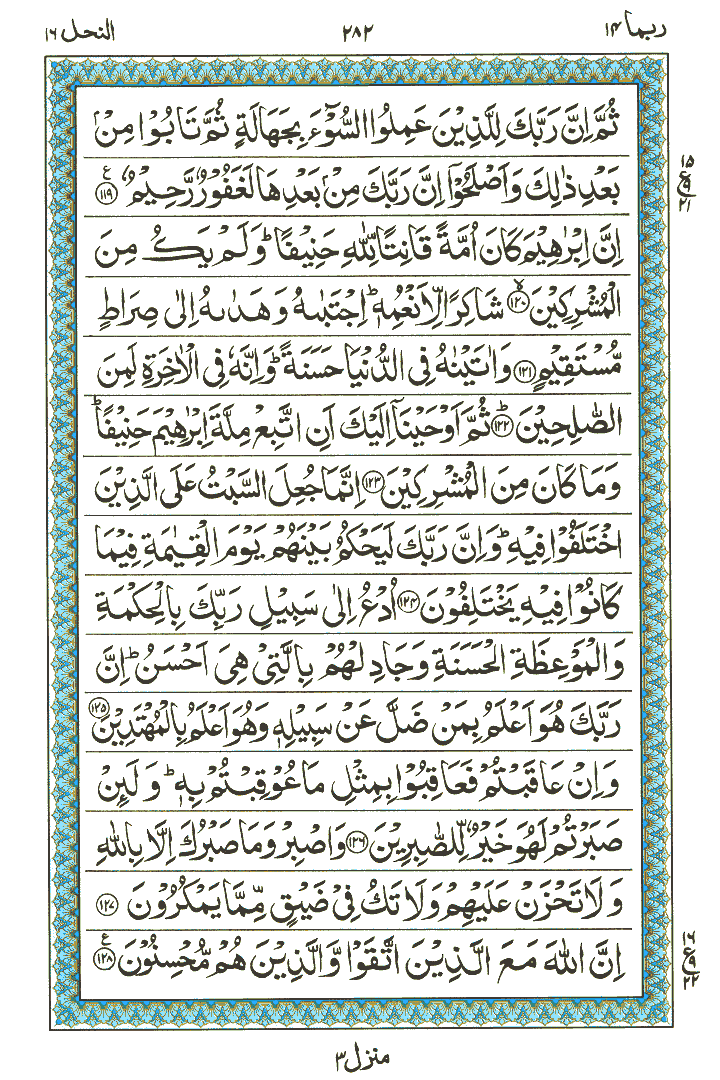 ربما ۱۴ ۲۸۲ النحل ۱۶
ثُمَّ اِنَّ رَبَّكَ لِلَّذِيْنَ عَمِلُوا السُّوْٓءَ بِجَهَالَةٍ ثُمَّ تَابُوْا مِنْۢ
بَعْدِ ذٰلِكَ وَاَصْلَحُوْۤا اِنَّ رَبَّكَ مِنْۢ بَعْدِهَا لَغَفُوْرٌ رَّحِيْمٌ ۱۱۹ ع
۱۵ ع ۹ ۲۱
اِنَّ اِبْرٰهِيْمَ كَانَ اُمَّةً قَانِتًا لِّلّٰهِ حَنِيْفًا ؕ وَلَمْ يَكُ مِنَ
الْمُشْرِكِيْنَ ۙ ۱۲۰ شَاكِرًا لِّاَنْعُمِهٖ ؕ اِجْتَبٰىهُ وَهَدٰىهُ اِلٰى صِرَاطٍ
مُّسْتَقِيْمٍ ۱۲۱ وَاٰتَيْنٰهُ فِى الدُّنْيَا حَسَنَةً ؕ وَاِنَّهٗ فِى الْاٰخِرَةِ لَمِنَ
الصّٰلِحِيْنَ ؕ ۱۲۲ ثُمَّ اَوْحَيْنَاۤ اِلَيْكَ اَنِ اتَّبِعْ مِلَّةَ اِبْرٰهِيْمَ حَنِيْفًا ؕ
وَمَا كَانَ مِنَ الْمُشْرِكِيْنَ ۱۲۳ اِنَّمَا جُعِلَ السَّبْتُ عَلَى الَّذِيْنَ
اخْتَلَفُوْا فِيْهِ ؕ وَاِنَّ رَبَّكَ لَيَحْكُمُ بَيْنَهُمْ يَوْمَ الْقِيٰمَةِ فِيْمَا
كَانُوْا فِيْهِ يَخْتَلِفُوْنَ ۱۲۴ اُدْعُ اِلٰى سَبِيْلِ رَبِّكَ بِالْحِكْمَةِ
وَالْمَوْعِظَةِ الْحَسَنَةِ وَجَادِلْهُمْ بِالَّتِىْ هِىَ اَحْسَنُ ؕ اِنَّ
رَبَّكَ هُوَ اَعْلَمُ بِمَنْ ضَلَّ عَنْ سَبِيْلِهٖ وَهُوَ اَعْلَمُ بِالْمُهْتَدِيْنَ ۱۲۵
وَاِنْ عَاقَبْتُمْ فَعَاقِبُوْا بِمِثْلِ مَا عُوْقِبْتُمْ بِهٖ ؕ وَلَئِنْ
صَبَرْتُمْ لَهُوَ خَيْرٌ لِّلصّٰبِرِيْنَ ۱۲۶ وَاصْبِرْ وَمَا صَبْرُكَ اِلَّا بِاللّٰهِ
وَلَا تَحْزَنْ عَلَيْهِمْ وَلَا تَكُ فِىْ ضَيْقٍ مِّمَّا يَمْكُرُوْنَ ۱۲۷
اِنَّ اللّٰهَ مَعَ الَّذِيْنَ اتَّقَوْا وَّالَّذِيْنَ هُمْ مُّحْسِنُوْنَ ۱۲۸ ع
۱۶ ع ۹ ۲۲
منزل ۳